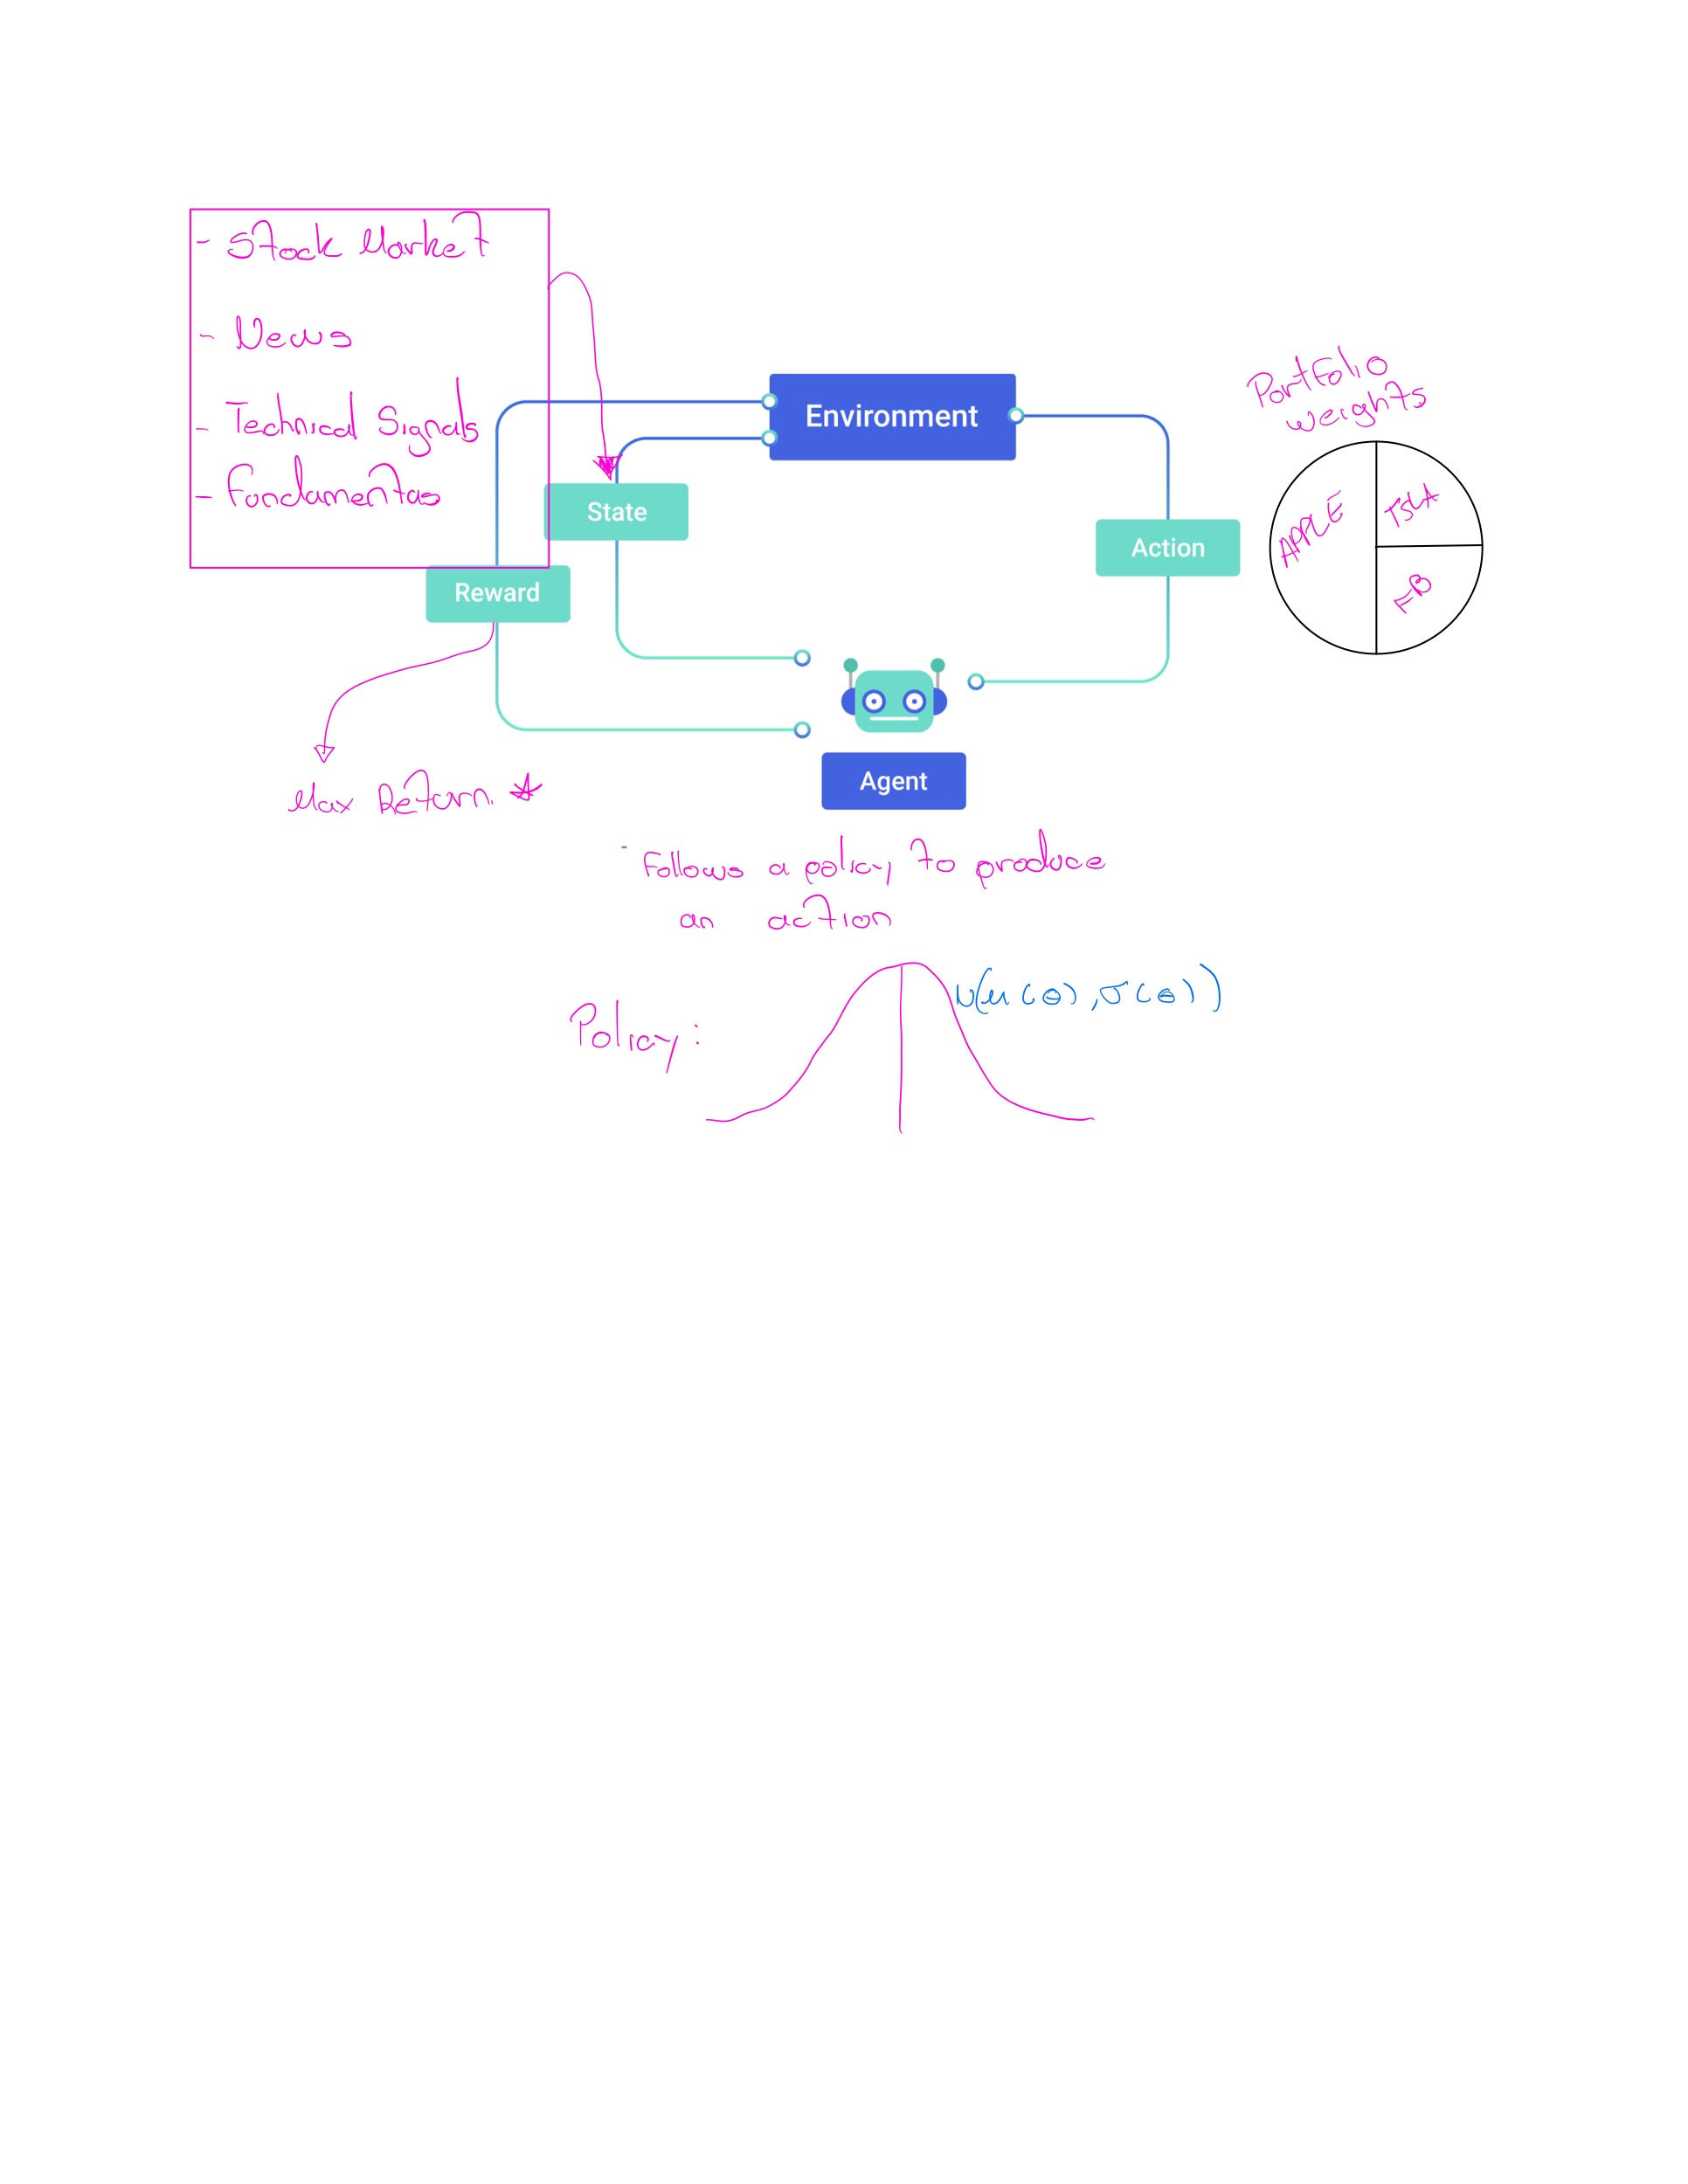 - Stock Market
- News
- Technical Signals
- Fundamentas
Environment
State
Reward
Action
Portfolio
weights
APPLE
TSLA
FB
Agent
Max Return. *
- Follows a policy to produce
an action
Policy:
N(μ(θ), σ(θ))